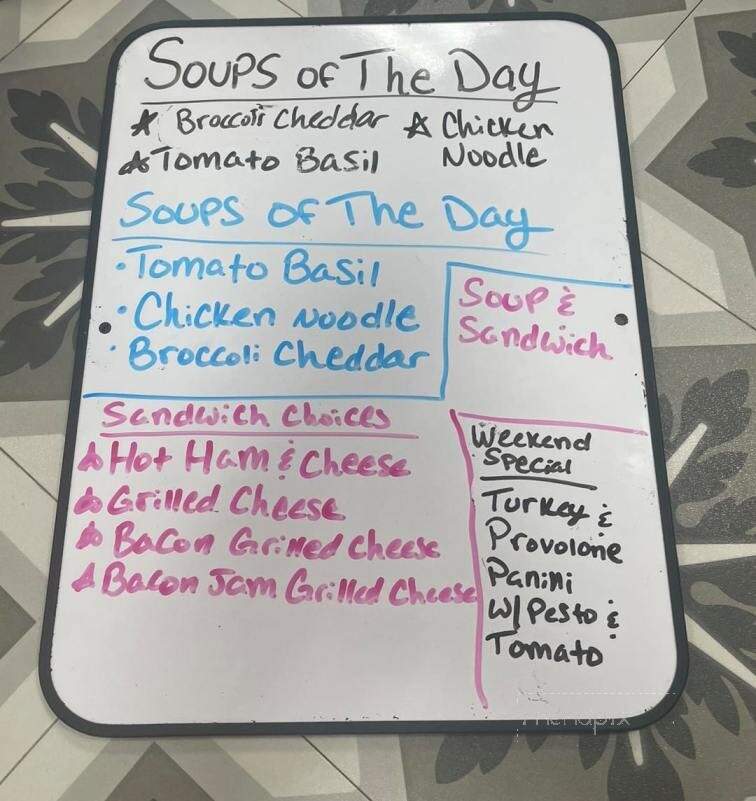 Soups of The Day
Broccoli Cheddar
Chicken
Tomato Basil
Noodle
Soups of The Day
Tomato Basil
Chicken Noodle
Broccoli Cheddar
Soup &
Sandwich
Sandwich Choices
Hot Ham & Cheese
Grilled Cheese
Bacon Grilled Cheese
Bacon Jam Grilled Cheese
Weekend
Special
Turkey &
Provolone
Panini
W/Pesto &
Tomato
menupix